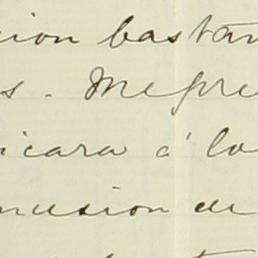 sion bastan
s. Me pre
icara á la
cusion de